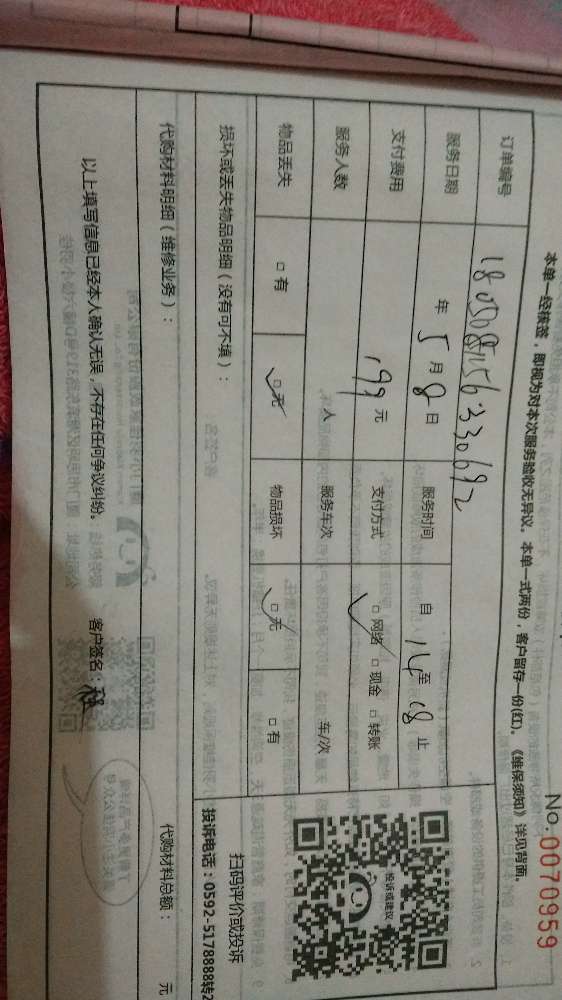 No.0070959
本单一经核签，即视为对本次服务验收无异议。本单一式两份，客户留存一份(红)。《维保须知》详见背面。
订单编号
服务日期 年 5 月 8 日 服务时间 自 14 至 18 止
支付费用 199 元 支付方式 □网络 □现金 □转账
服务人数 人 服务车次 车/次
物品丢失 □有 □无 物品损坏 □无 □有
损坏或丢失物品明细（没有可不填）：
投诉或建议
扫码评价或投诉
投诉电话：0592-5178888转2
代购材料明细（维修业务）：
代购材料总额： 元
以上填写信息已经本人确认无误，不存在任何争议纠纷。 客户签名：